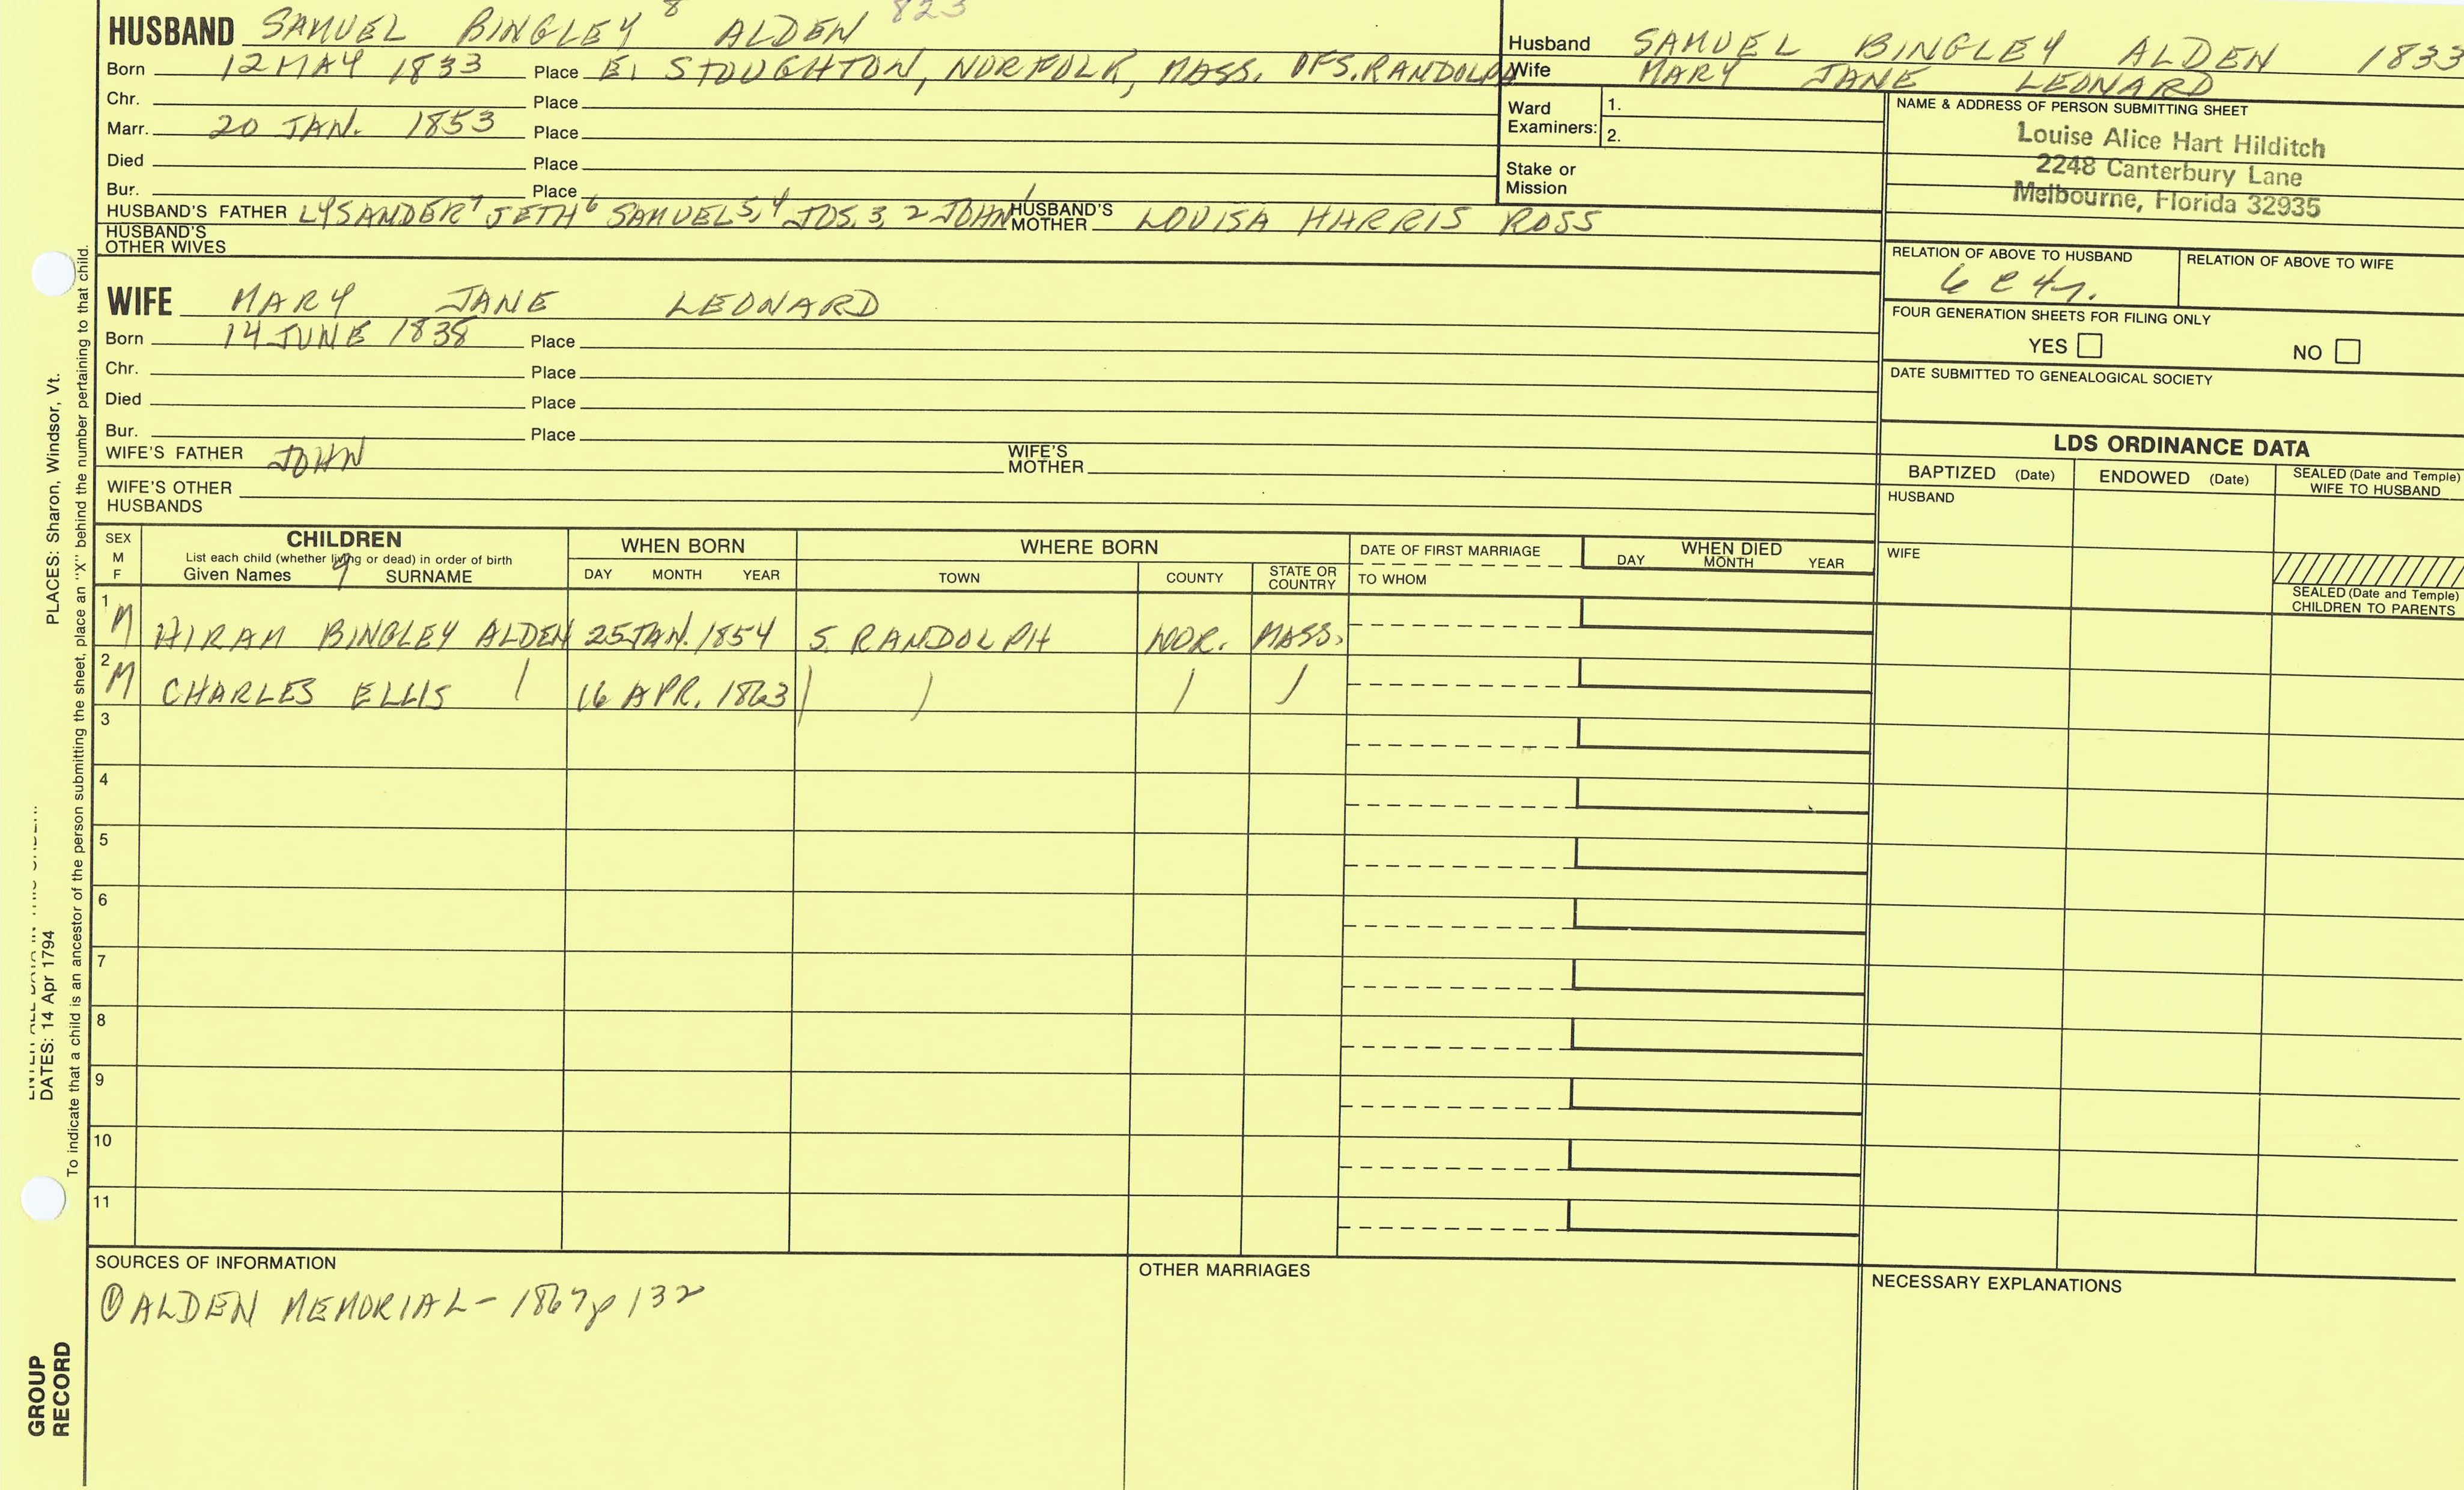 HUSBAND SAMUEL BINGLEY 8 ALDEN 823
Born 12 MAY 1833 Place E. STOUGHTON, NORFOLK, MASS. OF S. RANDOLPH
Chr. Place
Marr. 20 JAN. 1853 Place
Died Place
Bur. Place
HUSBAND'S FATHER LYSANDER 7 SETH 6 SAMUEL 5,4 JOS. 3, 2 JOHN 1 HUSBAND'S MOTHER LOUISA HARRIS ROSS
HUSBAND'S OTHER WIVES
Husband SAMUEL BINGLEY ALDEN 1833
Wife MARY JANE LEONARD
Ward Examiners: 1.
2.
Stake or Mission
NAME & ADDRESS OF PERSON SUBMITTING SHEET
Louise Alice Hart Hilditch
2248 Canterbury Lane
Melbourne, Florida 32935
RELATION OF ABOVE TO HUSBAND RELATION OF ABOVE TO WIFE
6 C 4 r.
FOUR GENERATION SHEETS FOR FILING ONLY
YES NO
DATE SUBMITTED TO GENEALOGICAL SOCIETY
WIFE MARY JANE LEONARD
Born 14 JUNE 1838 Place
Chr. Place
Died Place
Bur. Place
WIFE'S FATHER JOHN WIFE'S MOTHER
WIFE'S OTHER HUSBANDS
LDS ORDINANCE DATA
BAPTIZED (Date) ENDOWED (Date) SEALED (Date and Temple) WIFE TO HUSBAND
HUSBAND
WIFE
SEALED (Date and Temple) CHILDREN TO PARENTS
SEX M F CHILDREN WHEN BORN WHERE BORN DATE OF FIRST MARRIAGE WHEN DIED
List each child (whether living or dead) in order of birth
Given Names 9 SURNAME DAY MONTH YEAR TOWN COUNTY STATE OR COUNTRY TO WHOM DAY MONTH YEAR
1 M HIRAM BINGLEY ALDEN 25 JAN. 1854 S. RANDOLPH NOR. MASS.
2 M CHARLES ELLIS 16 APR. 1863
3
4
5
6
7
8
9
10
11
SOURCES OF INFORMATION
① ALDEN MEMORIAL - 1867 p 132
OTHER MARRIAGES
NECESSARY EXPLANATIONS
DATES: 14 Apr 1794 PLACES: Sharon, Windsor, Vt.
To indicate that a child is an ancestor of the person submitting the sheet, place an "X" behind the number pertaining to that child.
GROUP RECORD